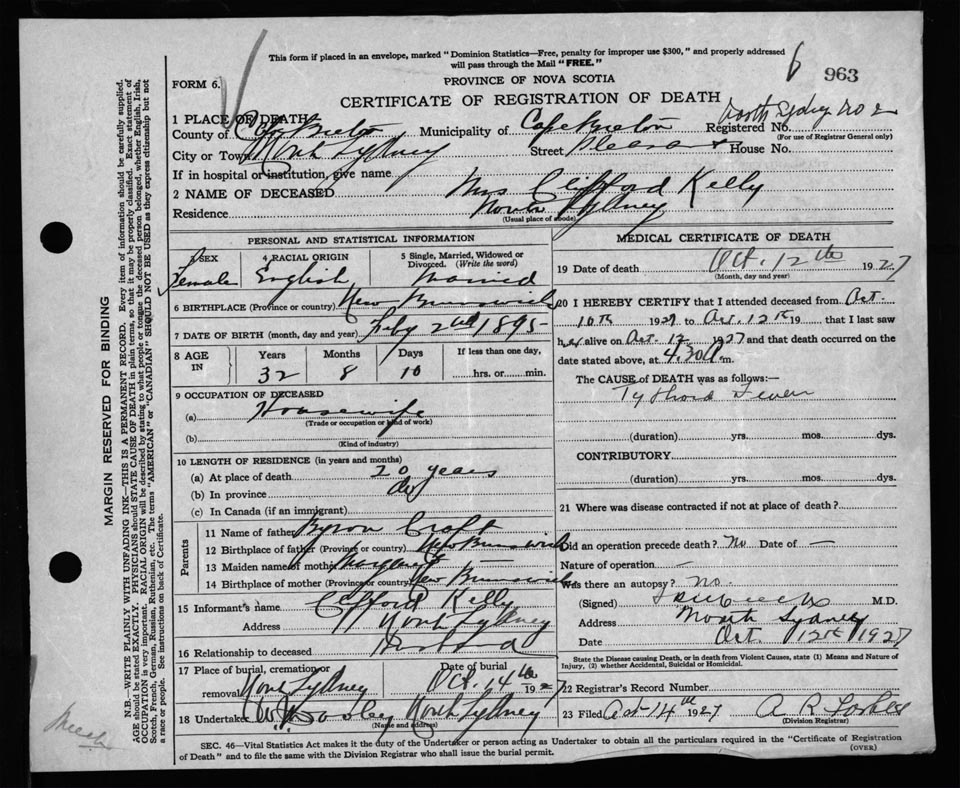 This form if placed in an envelope, marked "Dominion Statistics—Free, penalty for improper use $300," and properly addressed
will pass through the Mail "FREE."
6 963
FORM 6.
PROVINCE OF NOVA SCOTIA
CERTIFICATE OF REGISTRATION OF DEATH
1 PLACE OF DEATH
County of Cape Breton Municipality of Cape Breton Registered No. North Sydney no 2
(For use of Registrar General only)
City or Town North Sydney Street Pleasant House No.
If in hospital or institution, give name
2 NAME OF DECEASED Mrs Clifford Kelly
Residence North Sydney
(Usual place of abode)
PERSONAL AND STATISTICAL INFORMATION
3 SEX 4 RACIAL ORIGIN 5 Single, Married, Widowed or
Divorced. (Write the word)
Female English Married
6 BIRTHPLACE (Province or country) New Brunswick
7 DATE OF BIRTH (month, day and year) Feby 2nd 1895
8 AGE IN Years Months Days If less than one day,
32 8 10 hrs. or min.
9 OCCUPATION OF DECEASED
(a) Housewife
(Trade or occupation or kind of work)
(b)
(Kind of industry)
10 LENGTH OF RESIDENCE (in years and months)
(a) At place of death 20 years
(b) In province do
(c) In Canada (if an immigrant)
Parents
11 Name of father Byron Croft
12 Birthplace of father (Province or country) New Brunswick
13 Maiden name of mother Margaret
14 Birthplace of mother (Province or country) New Brunswick
15 Informant's name Clifford Kelly
Address North Sydney
16 Relationship to deceased Husband
17 Place of burial, cremation or Date of burial
removal North Sydney Oct. 14th 1927
18 Undertaker North Sydney
(Name and address)
MEDICAL CERTIFICATE OF DEATH
19 Date of death Oct. 12th 1927
(Month, day and year)
20 I HEREBY CERTIFY that I attended deceased from Oct.
10th 1927 to Oct. 12th 19 that I last saw
her alive on Oct. 12 1927 and that death occurred on the
date stated above, at 4.30 P.m.
The CAUSE OF DEATH was as follows:—
Typhoid Fever
(duration) yrs. mos. dys.
CONTRIBUTORY
(duration) yrs. mos. dys.
21 Where was disease contracted if not at place of death?
Did an operation precede death? No Date of —
Nature of operation —
Was there an autopsy? No.
(Signed) M.D.
Address North Sydney
Date Oct. 12th 1927
State the Disease causing Death, or in death from Violent Causes, state (1) Means and Nature of
Injury, (2) whether Accidental, Suicidal or Homicidal.
22 Registrar's Record Number
23 Filed Oct 14th 1927 A R Forbes
(Division Registrar)
SEC. 46—Vital Statistics Act makes it the duty of the Undertaker or person acting as Undertaker to obtain all the particulars required in the "Certificate of Registration
of Death" and to file the same with the Division Registrar who shall issue the burial permit. (OVER)
MARGIN RESERVED FOR BINDING
N.B.—WRITE PLAINLY WITH UNFADING INK—THIS IS A PERMANENT RECORD. Every item of information should be carefully supplied.
AGE should be stated EXACTLY. PHYSICIANS should STATE CAUSE OF DEATH in plain terms, so that it may be properly classified. Exact statement of
OCCUPATION is very important. RACIAL ORIGIN will be described by stating to what people or tongue the deceased person belonged, whether English, Irish,
Scotch, French, German, Russian, Ruthenian, etc. The terms "AMERICAN" or "CANADIAN" SHOULD NOT BE USED as they express citizenship but not
a race or people. See instructions on back of Certificate.